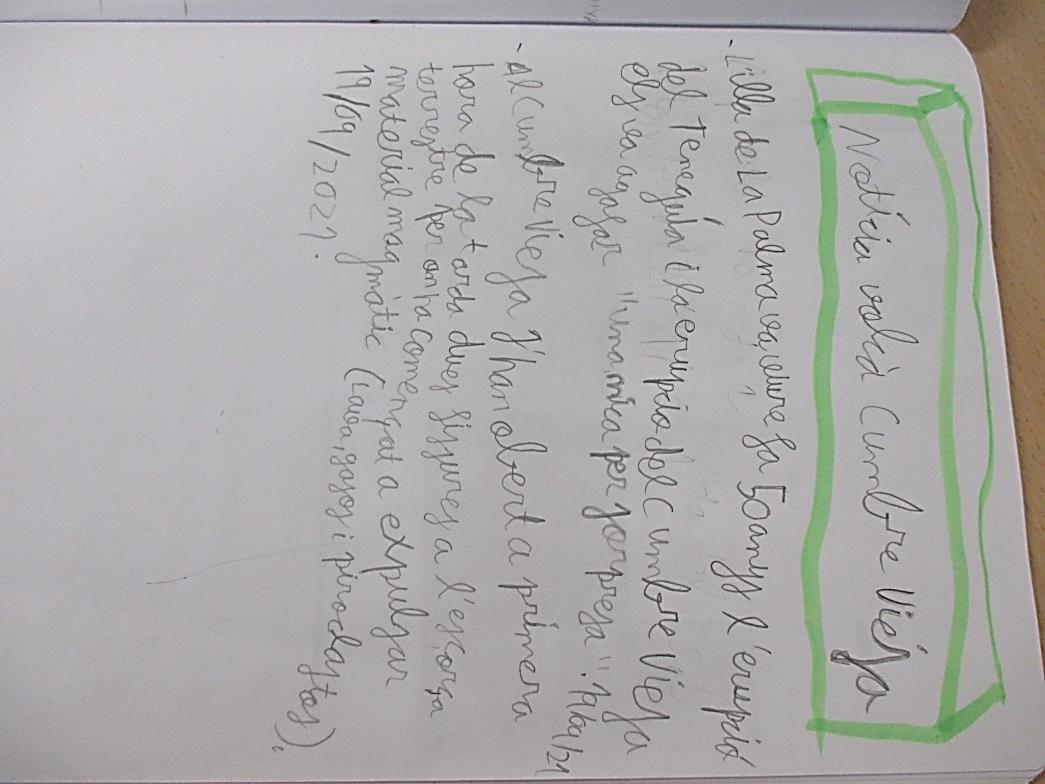 Notícia volcà Cumbre Vieja
- L'illa de La Palma va viure fa 50 anys l'erupció
del Teneguía i la erupció del Cumbre Vieja
els ea agafar "una mica per sorpresa". 19/09/21
- Al Cumbre Vieja s'han obert a primera
hora de la tarda dues fissures a l'escorça
terrestre per on ha començat a expulsar
material magmàtic (Lava, gasos i piroclastos),
19/09/2021.